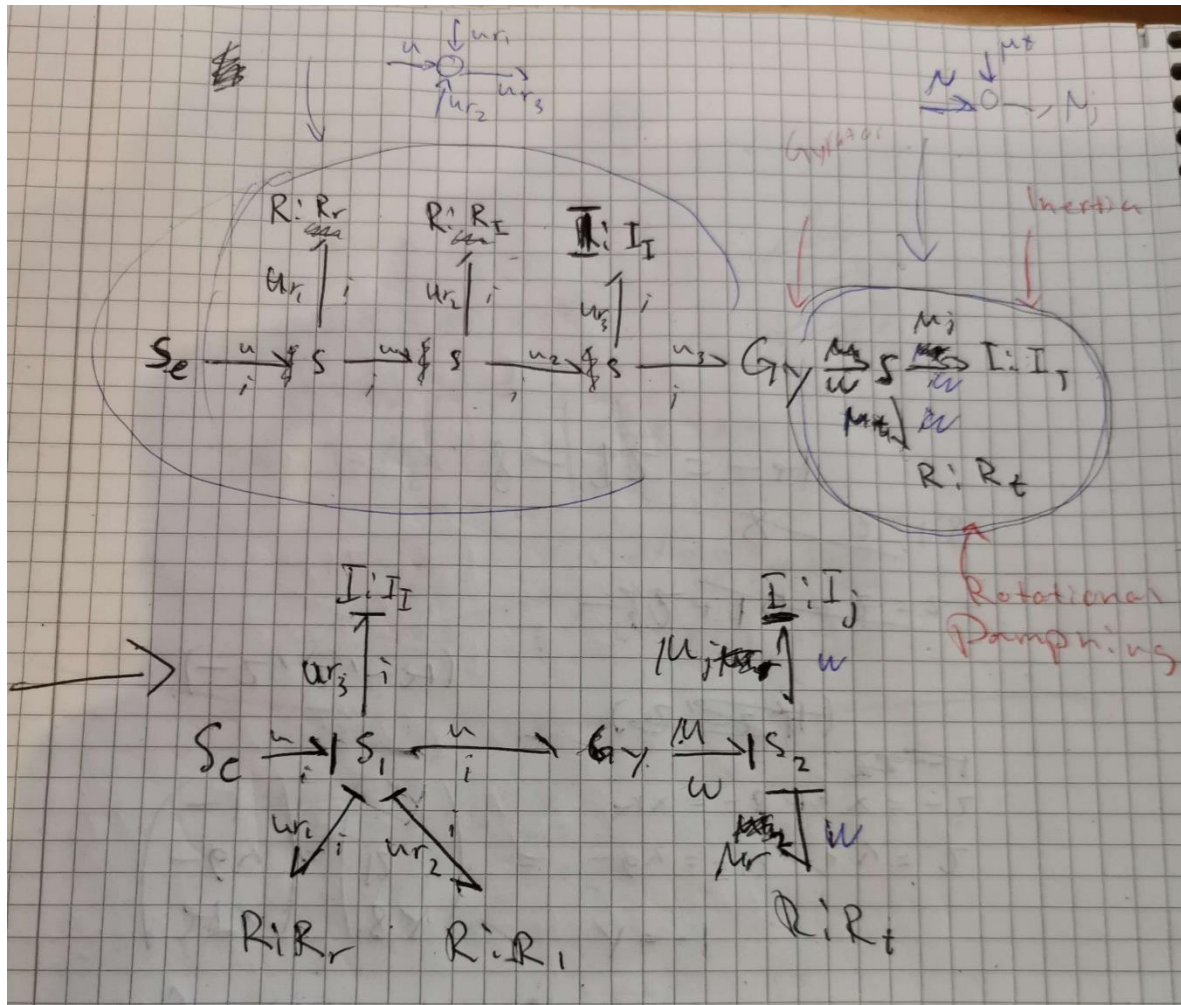 u ur₁
ur₂ ur₃
μt
μ μj
Gyrator
Inertia
R: Rr R: R_I I: I_I
ur₁ i ur₂ i ur₃ i
Se u i S i S u₂ i S u₃ i Gy w S μj w I: Ij
w
R: Rt
Rotational
Dampning
I: I_I I: Ij
ur₃ i μj w
Se u i S₁ u i Gy μ w S₂
ur₁ i ur₂ i μr w
R: Rr R: R₁ R: Rt